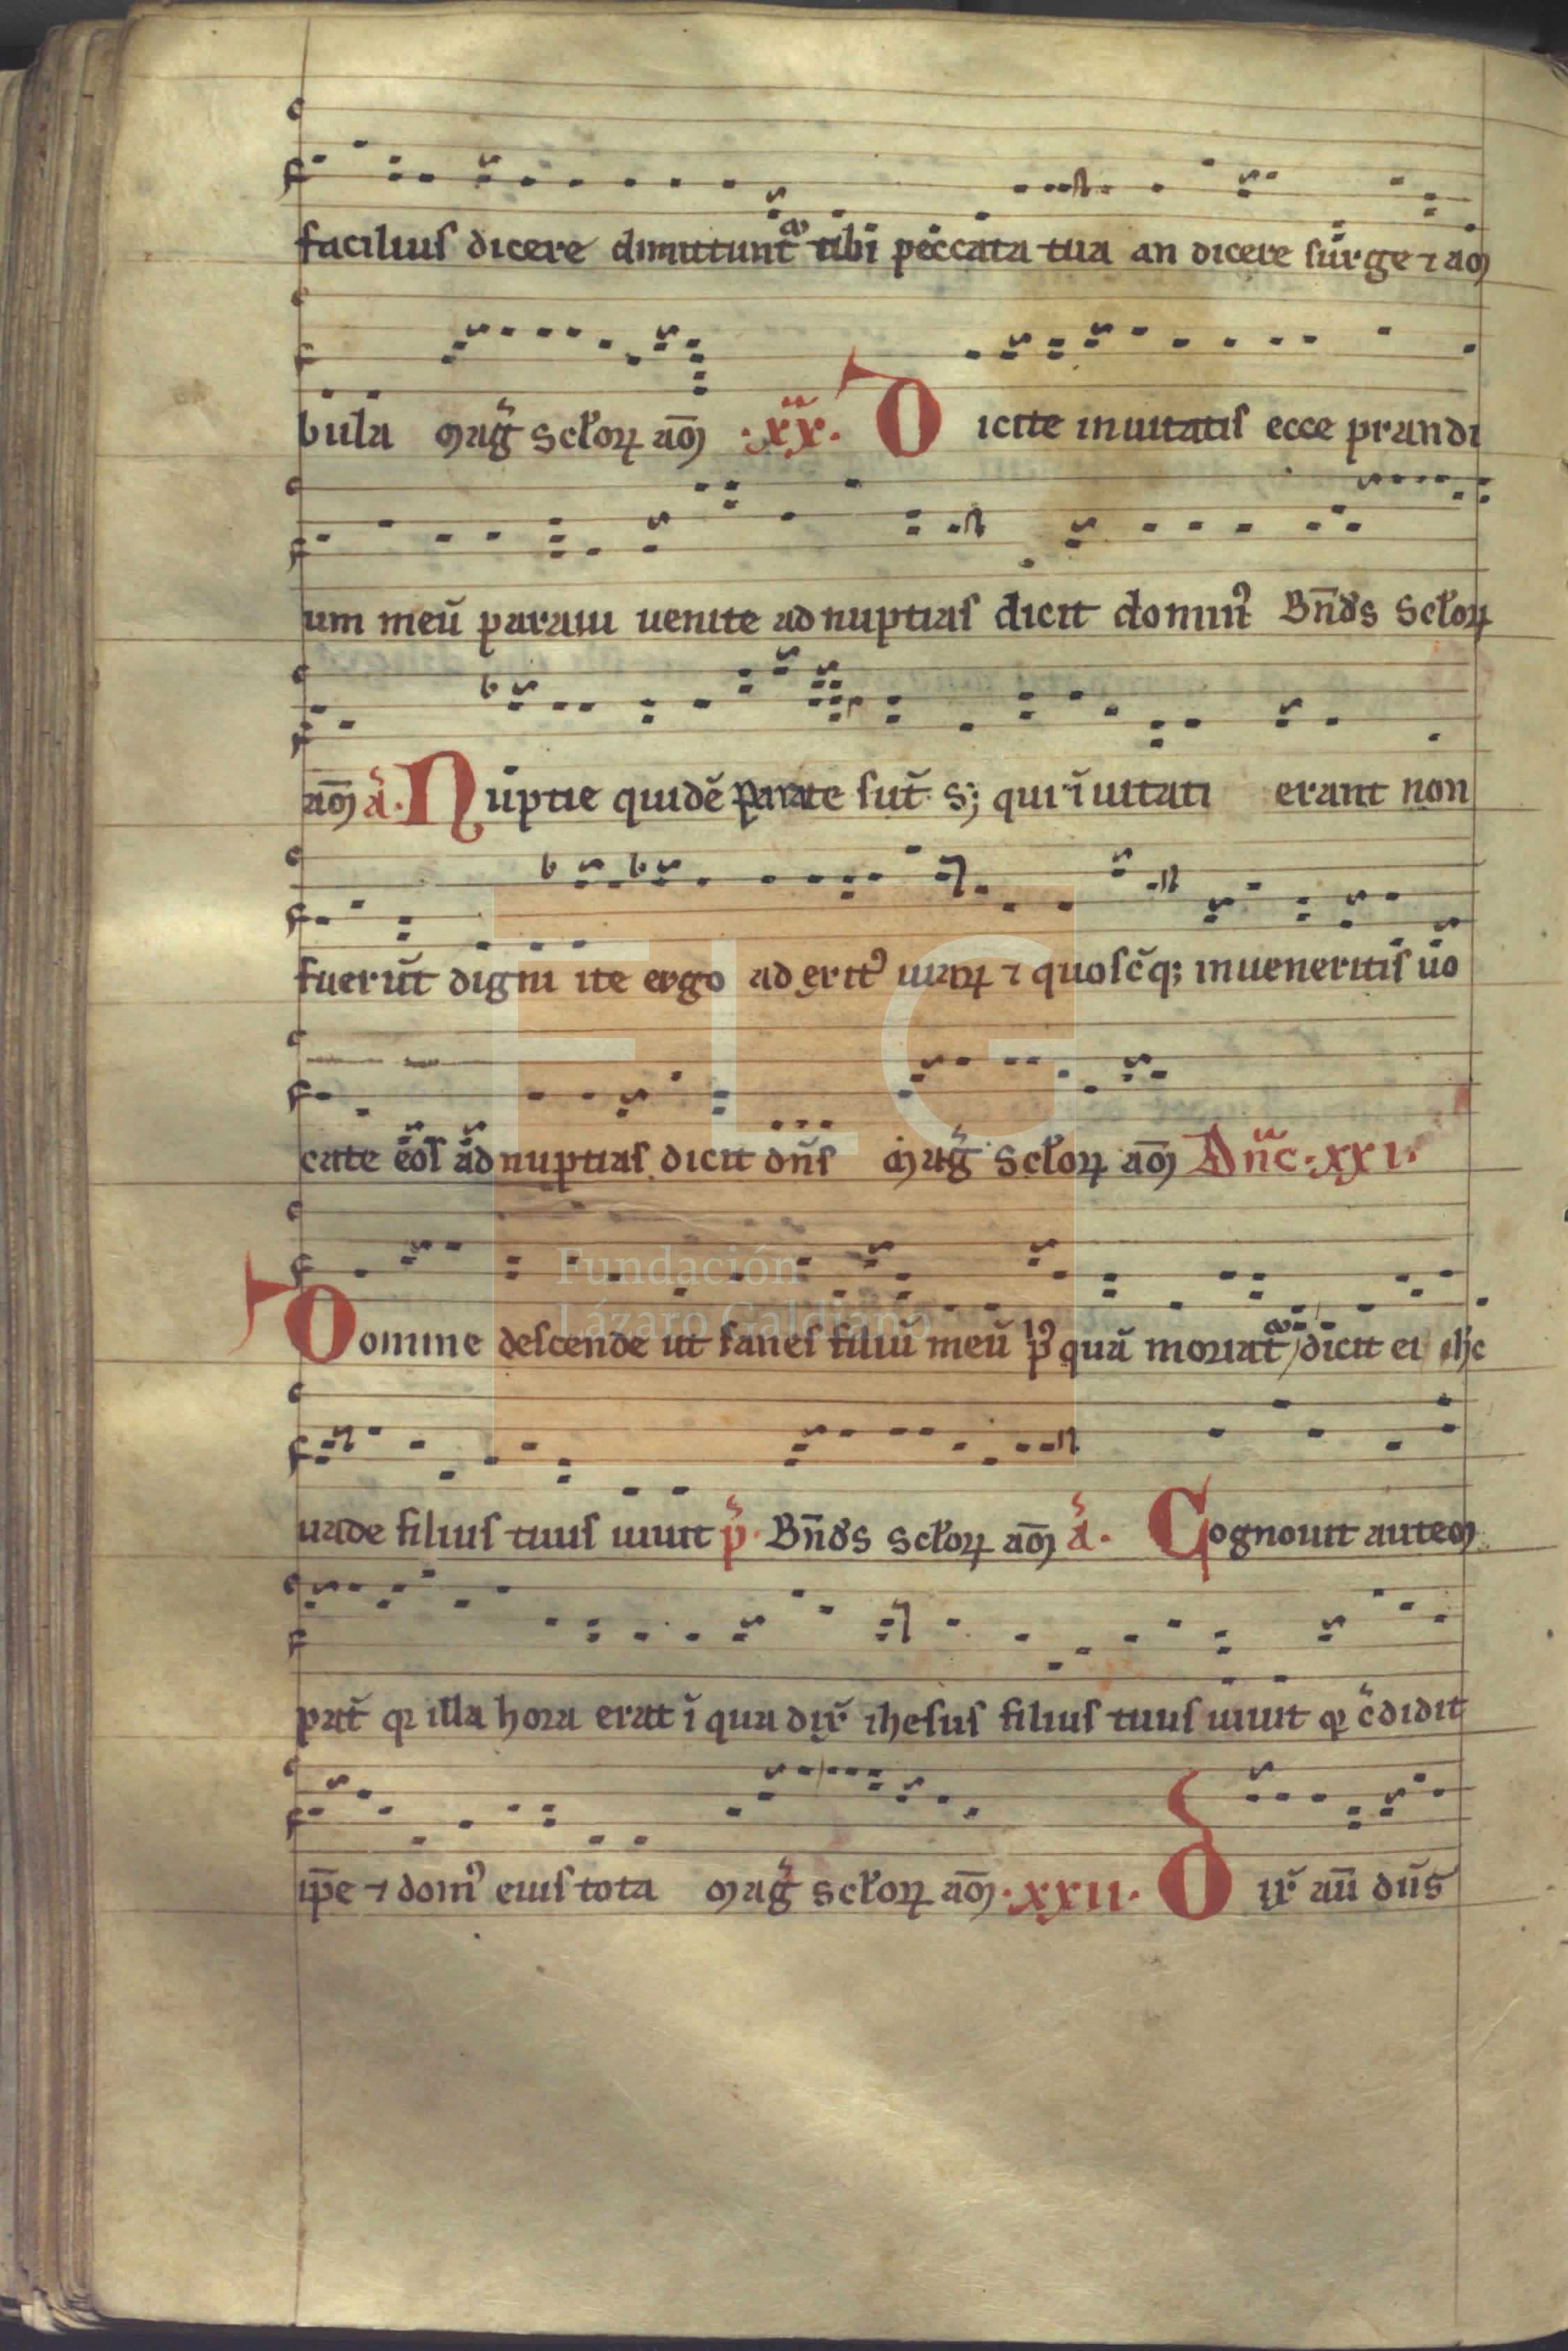 facilius dicere dimittunt᷑ tibi peccata tua an dicere surge ⁊ am
bula mag̃ sc̃loꝝ am̅ .xx̃. Dicite inuitatis ecce prandi
um meũ paraui uenite ad nuptias dicit domin᷒ Bn̅ds sc̃loꝝ
am̅ a̓. Nuptie quidẽ parate sut̃ s; qui ĩuitati erant non
fuerũt digni ite ergo ad exit᷒ uiaꝝ ⁊ quosc̃q; inueneritis uo
cate eos ad nuptias dicit dñs mag̃ sc̃loꝝ am̅ Dñc.xxi.
Domine descende ut sanes filiũ meũ p᷒quã moriat᷑ dicit ei ihc
uade filius tuus uiuit p̃. Bn̅ds sc̃loꝝ am̅ a̓. Cognouit autem
pat̃ qꝛ illa hora erat ĩ qua dix̃ ihesus filius tuus uiuit qꝛ c̃didit
ip̅e ⁊ dom᷒ eius tota mag̃ sc̃loꝝ am̅.xxii. Dix̃ aũ dñs
FLG
Fundación
Lázaro Galdiano